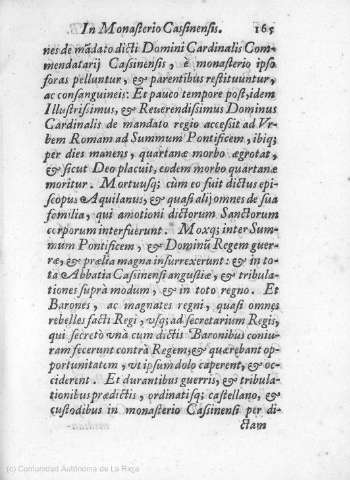 In Monasterio Cassinensis. 165
nes de mãdato dicti Domini Cardinalis Com-
mendatarij Cassinensis, è monasterio ipso
foras pelluntur, & parentibus restituuntur,
ac consanguineis: Et pauco tempore post, idem
Illustrissimus, & Reuerendissimus Dominus
Cardinalis de mandato regio accessit ad Vr-
bem Romam ad Summum Pontificem, ibiq;
per dies manens, quartanæ morbo ægrotat,
& sicut Deo placuit, eodem morbo quartanæ
moritur. Mortuusq; cùm eo fuit dictus epi-
scopus Aquilanus, & quasi alij omnes de sua
familia, qui amotioni dictorum Sanctorum
corporum interfuerunt. Moxq; inter Sum-
mum Pontificem, & Dominũ Regem guer-
ræ, & prælia magna insurrexerunt: & in to-
ta Abbatia Cassinensi angustiæ, & tribula-
tiones suprà modum, & in toto regno. Et
Barones, ac magnates regni, quasi omnes
rebelles facti Regi, vsq; ad secretarium Regis,
qui secretò vnà cum dictis Baronibus coniu-
ram fecerunt contrà Regem, & quærebant op-
portunitatem, vt ipsum dolo caperent, & oc-
ciderent. Et durantibus guerris, & tribula-
tionibus prædictis, ordinatisq; castellano, &
custodibus in monasterio Cassinensi per di-
ctam
(c) Comunidad Autónoma de La Rioja